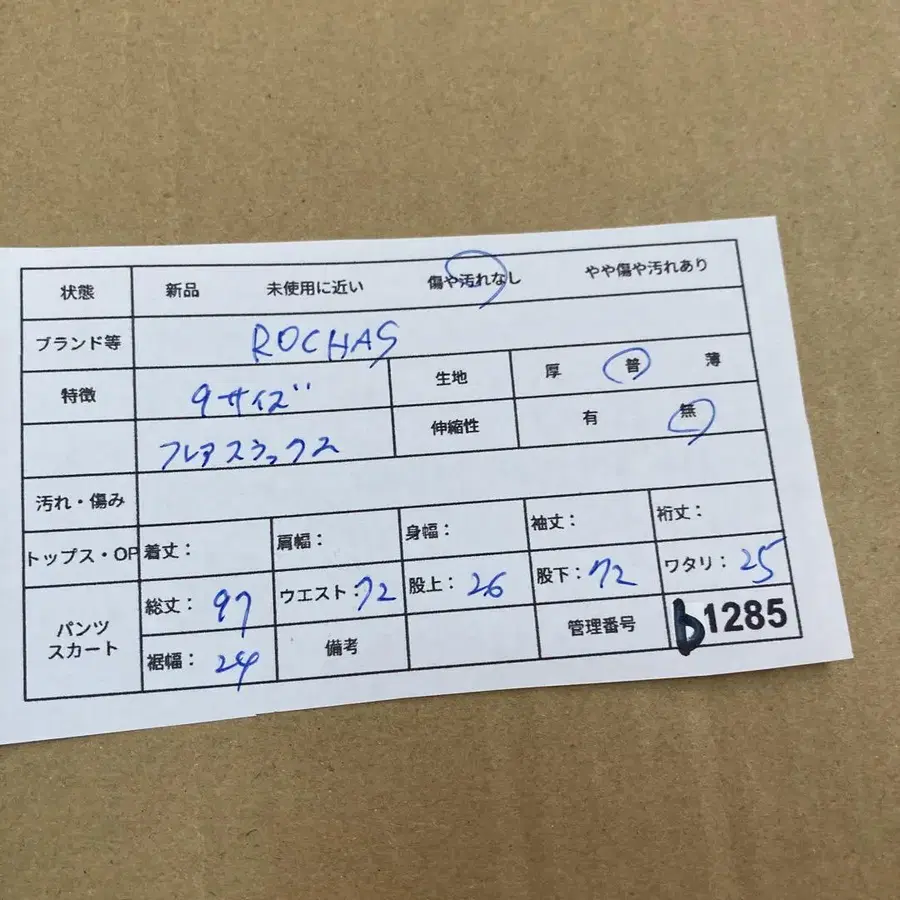 状態 新品 未使用に近い 傷や汚れなし やや傷や汚れあり
ブランド等 ROCHAS
特徴 9サイズ 生地 厚 普 薄
フレアスラックス 伸縮性 有 無
汚れ・傷み
トップス・OP 着丈： 肩幅： 身幅： 袖丈： 裄丈：
パンツ スカート 総丈：97 ウエスト：72 股上：26 股下：72 ワタリ：25
裾幅：24 備考 管理番号 b1285